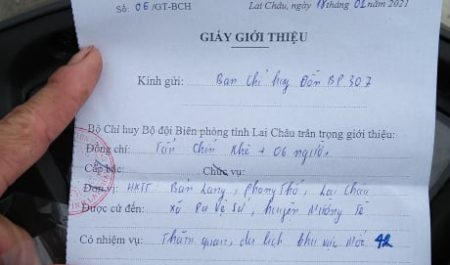 Số: 06/GT-BCH Lai Châu, ngày 18 tháng 02 năm 2021
GIẤY GIỚI THIỆU
Kính gửi: Ban Chỉ huy Đồn BP 307
Bộ Chỉ huy Bộ đội Biên phòng tỉnh Lai Châu trân trọng giới thiệu:
Đồng chí: Tẩn Chỉn Khè + 06 người
Cấp bậc: Chức vụ:
Đơn vị: HKTT: Bản Lang, Phong Thổ, Lai Châu
Được cử đến: Xã Pa Vệ Sử, huyện Mường Tè
Có nhiệm vụ: Thăm quan, du lịch khu vực Mốc 42